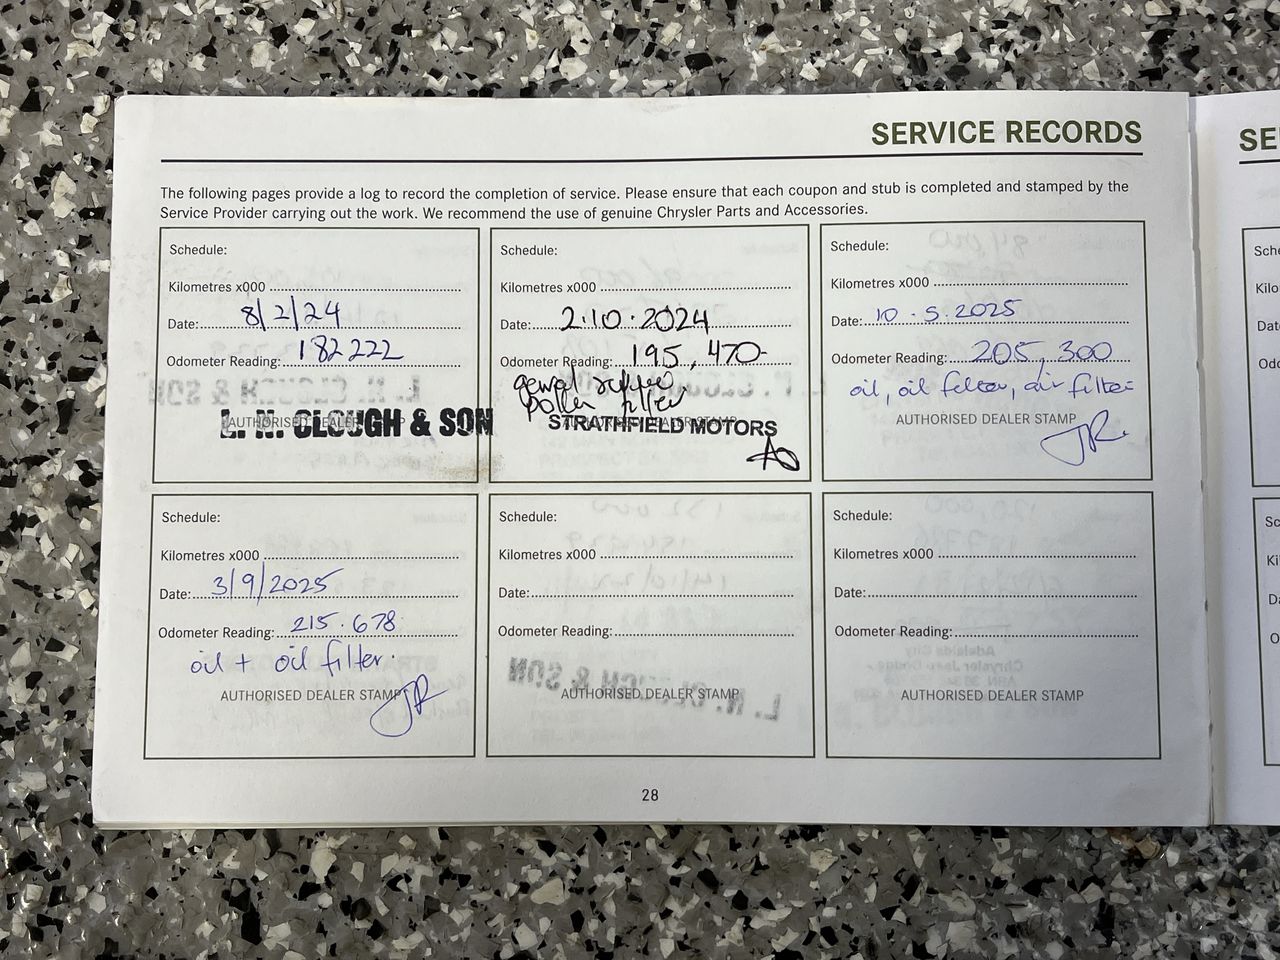 SERVICE RECORDS
The following pages provide a log to record the completion of service. Please ensure that each coupon and stub is completed and stamped by the
Service Provider carrying out the work. We recommend the use of genuine Chrysler Parts and Accessories.
Schedule:
Kilometres x000
Date: 8/2/24
Odometer Reading: 182222
AUTHORISED DEALER STAMP
L. N. CLOUGH & SON
Schedule:
Kilometres x000
Date: 2.10.2024
Odometer Reading: 195,470
pollen filter
AUTHORISED DEALER STAMP
STRATHFIELD MOTORS
Schedule:
Kilometres x000
Date: 10.5.2025
Odometer Reading: 205,300
oil, oil filter, air filter
AUTHORISED DEALER STAMP
JR
Schedule:
Kilometres x000
Date: 3/9/2025
Odometer Reading: 215.678
oil + oil filter.
AUTHORISED DEALER STAMP
JR
Schedule:
Kilometres x000
Date:
Odometer Reading:
AUTHORISED DEALER STAMP
Schedule:
Kilometres x000
Date:
Odometer Reading:
AUTHORISED DEALER STAMP
28
SE
Sche
Kilo
Dat
Odo
Sc
Ki
Da
O